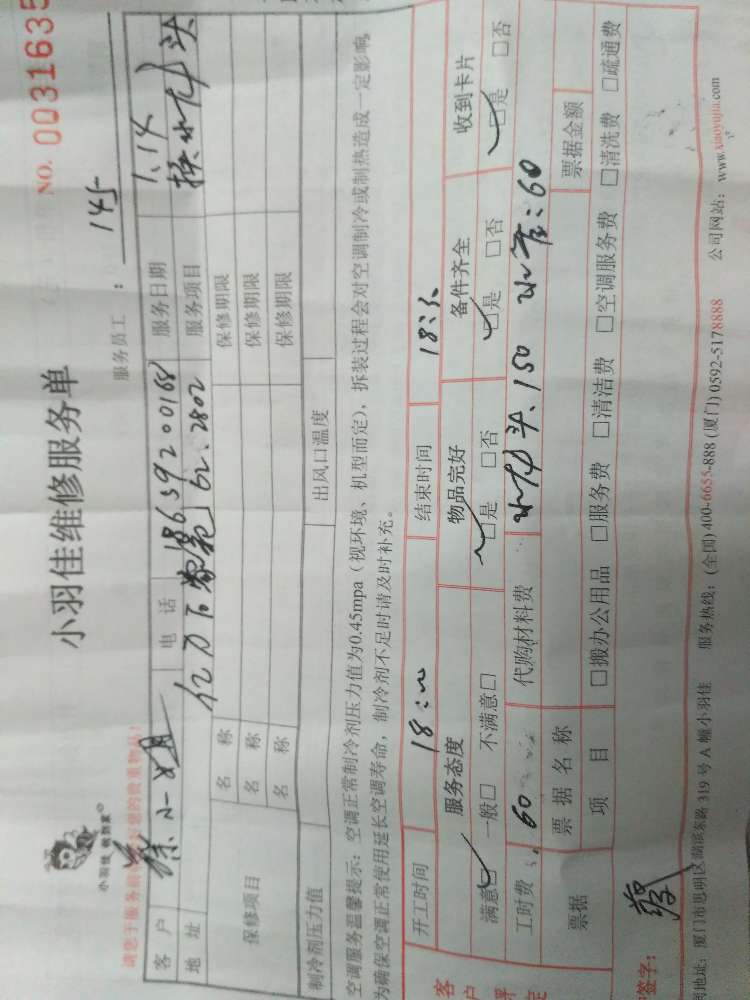 小羽佳 教到家
小羽佳维修服务单
NO. 0031635
服务员工： 145
客户 徐小姐 电话 18659200168 服务日期 1.14
地址 62.2802 服务项目 换水龙头
保修项目 名称 保修期限
名称 保修期限
名称 保修期限
制冷剂压力值 出风口温度
空调服务温馨提示：空调正常制冷剂压力值为0.45mpa（视环境、机型而定），拆装过程会对空调制冷或制热造成一定影响，
为确保空调正常使用延长空调寿命，制冷剂不足时请及时补充。
开工时间 18: 结束时间 18:
服务态度 物品完好 备件齐全 收到卡片
满意□ 一般□ 不满意□ □是 □否 □是 □否 □是 □否
工时费 60 代购材料费 水龙头:150 水管:60
票据 票据名称 票据金额
项目 □搬办公用品 □服务费 □清洁费 □空调服务费 □清洗费 □疏通费
签字：
地址：厦门市思明区湖滨东路319号A幢小羽佳 服务热线：(全国)400-6655-888 (厦门)0592-5178888 公司网站：www.xiaoyujia.com